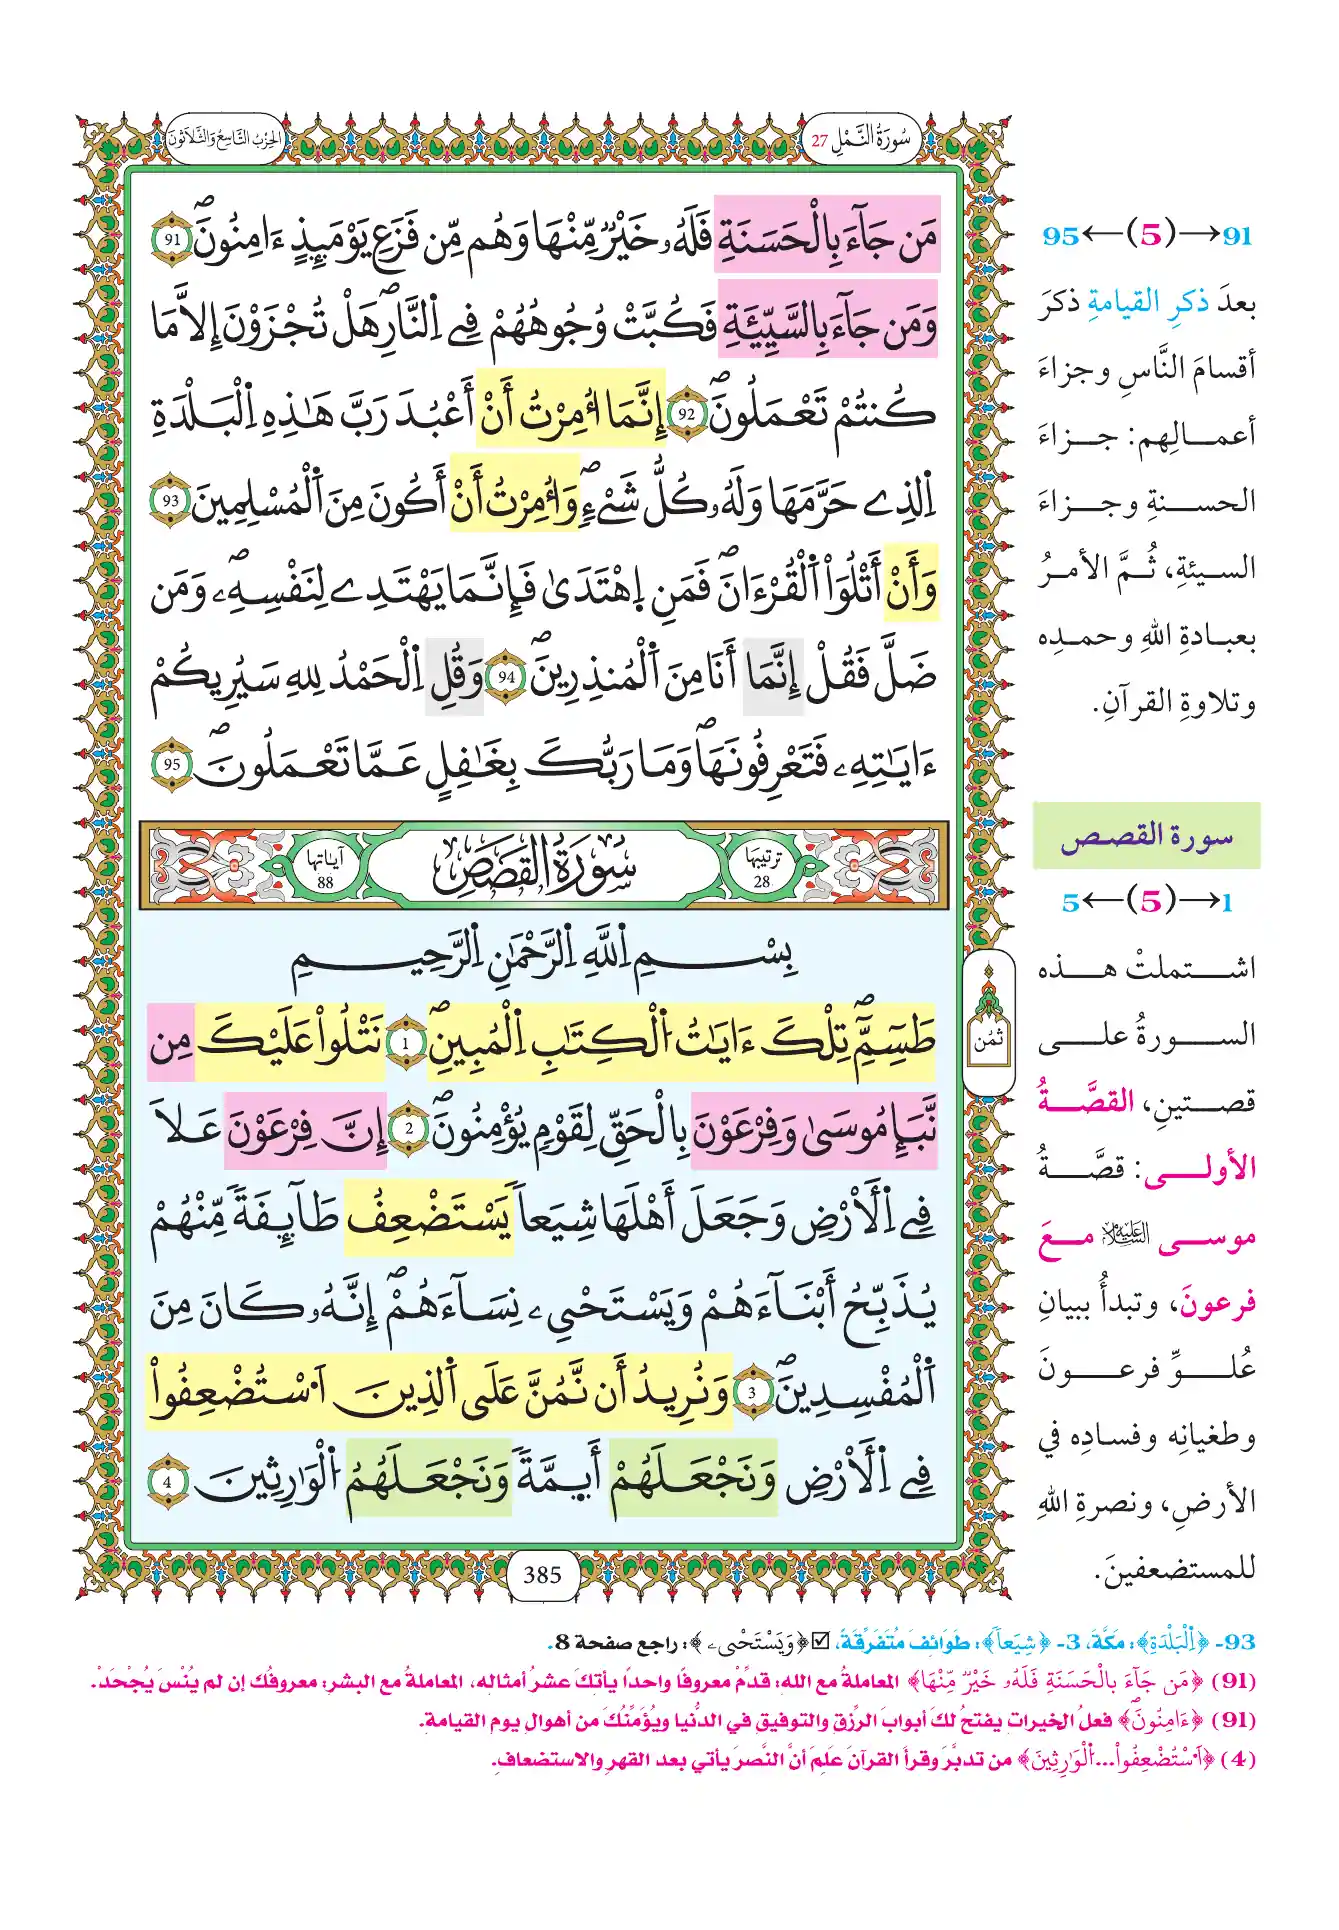 سُورَةُ النَّمْلِ 27
الحِزْبُ التَّاسِعُ وَالثَّلَاثُونَ
مَن جَآءَ بِالْحَسَنَةِ فَلَهُۥ خَيْرٌ مِّنْهَا وَهُم مِّن فَزَعِ يَوْمَئِذٍ ءَامِنُونَۖ 91
وَمَن جَآءَ بِالسَّيِّئَةِ فَكُبَّتْ وُجُوهُهُمْ فِے اِ۬لنّ۪ارِۖ هَلْ تُجْزَوْنَ إِلَّا مَا
كُنتُمْ تَعْمَلُونَۖ 92 إِنَّمَا أُمِرْتُ أَنْ أَعْبُدَ رَبَّ هَٰذِهِ اِ۬لْبَلْدَةِ
اِ۬لذِے حَرَّمَهَا وَلَهُۥ كُلُّ شَےْءٖۖ وَأُمِرْتُ أَنْ أَكُونَ مِنَ اَ۬لْمُسْلِمِينَ 93
وَأَنْ أَتْلُوَاْ اَ۬لْقُرْءَانَۖ فَمَنِ اِ۪هْتَدَىٰ فَإِنَّمَا يَهْتَدِے لِنَفْسِهِۦۖ وَمَن
ضَلَّ فَقُلْ إِنَّمَا أَنَا مِنَ اَ۬لْمُنذِرِينَۖ 94 وَقُلِ اِ۬لْحَمْدُ لِلهِ سَيُرِيكُمْ
ءَايَٰتِهِۦ فَتَعْرِفُونَهَاۖ وَمَا رَبُّكَ بِغَٰفِلٍ عَمَّا تَعْمَلُونَۖ 95
ترتيبها 28
سُورَةُ القَصَصِ
آياتها 88
بِسْمِ اِ۬للَّهِ اِ۬لرَّحْمَٰنِ اِ۬لرَّحِيمِ
طَسِٓمِّٓۖ تِلْكَ ءَايَٰتُ اُ۬لْكِتَٰبِ اِ۬لْمُبِينِۖ 1 نَتْلُواْ عَلَيْكَ مِن
نَّبَإِ مُوسَىٰ وَفِرْعَوْنَ بِالْحَقِّ لِقَوْمٍ يُؤْمِنُونَۖ 2 إِنَّ فِرْعَوْنَ عَلَا
فِے اِ۬لْأَرْضِ وَجَعَلَ أَهْلَهَا شِيَعاً يَسْتَضْعِفُ طَآئِفَةً مِّنْهُمْ
يُذَبِّحُ أَبْنَآءَهُمْ وَيَسْتَحْيِۦ نِسَآءَهُمْۖ إِنَّهُۥ كَانَ مِنَ
اَ۬لْمُفْسِدِينَۖ 3 وَنُرِيدُ أَن نَّمُنَّ عَلَى اَ۬لذِينَ اَ۟سْتُضْعِفُواْ
فِے اِ۬لْأَرْضِ وَنَجْعَلَهُمْ أَئِمَّةً وَنَجْعَلَهُمُ اُ۬لْوَٰرِثِينَ 4
ثمُن
385
91→(5)←95
بعدَ ذكرِ القيامةِ ذكرَ
أقسامَ النَّاسِ وجزاءَ
أعمالِهم: جزاءَ
الحسنةِ وجزاءَ
السيئةِ، ثُمَّ الأمرُ
بعبادةِ اللهِ وحمدِه
وتلاوةِ القرآنِ.
سورة القصص
1→(5)←5
اشتملتْ هذه
السورةُ على
قصتينِ، القصَّةُ
الأولى: قصَّةُ
موسى عليه السلام معَ
فرعونَ، وتبدأُ ببيانِ
عُلوِّ فرعونَ
وطغيانِه وفسادِه في
الأرضِ، ونصرةِ اللهِ
للمستضعفينَ.
93- ﴿اِ۬لْبَلْدَةِ﴾: مَكَّةَ، 3- ﴿شِيَعاً﴾: طَوَائِفَ مُتَفَرِّقَةً، ☑ ﴿وَيَسْتَحْيِۦ﴾: راجع صفحة 8.
(91) ﴿مَن جَآءَ بِالْحَسَنَةِ فَلَهُۥ خَيْرٌ مِّنْهَا﴾ المعاملةُ مع اللهِ: قدِّمْ معروفًا واحدًا يأتكَ عشرُ أمثالِه، المعاملةُ مع البشرِ: معروفُك إن لم يُنْسَ يُجْحَدْ.
(91) ﴿ءَامِنُونَۖ﴾ فعلُ الخيراتِ يفتحُ لكَ أبوابَ الرِّزقِ والتوفيقِ في الدُّنيا ويُؤَمِّنُكَ من أهوالِ يومِ القيامةِ.
(4) ﴿اَ۟سْتُضْعِفُواْ...اُ۬لْوَٰرِثِينَ﴾ من تدبَّرَ وقرأَ القرآنَ عَلِمَ أنَّ النَّصرَ يأتي بعد القهرِ والاستضعافِ.